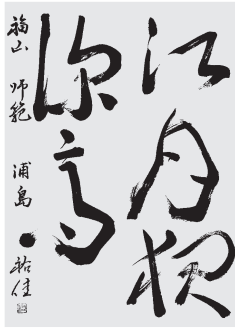 江月夜
深高
福山 師範 浦島 ● 祐佳